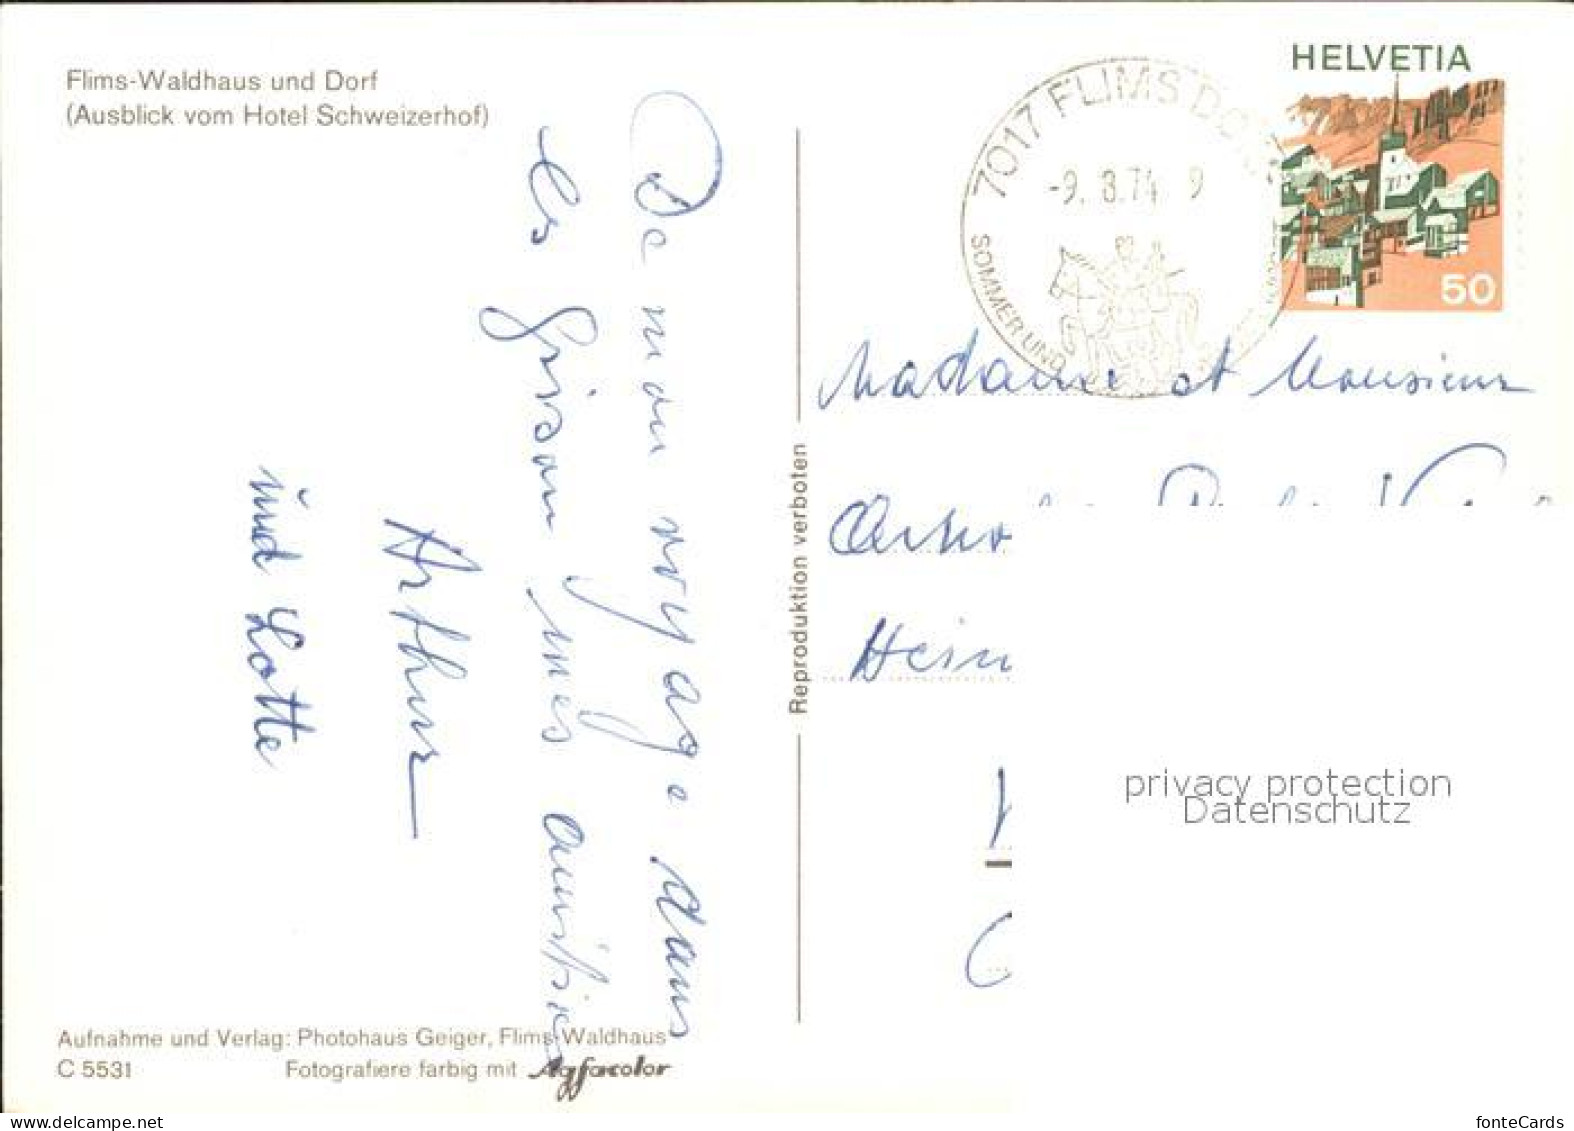 Flims-Waldhaus und Dorf
(Ausblick vom Hotel Schweizerhof)
De mon voyage dans
les Grison mes amitiés
Arthur
und Lotte
Aufnahme und Verlag: Photohaus Geiger, Flims-Waldhaus
C 5531 Fotografiere farbig mit Agfacolor
Reproduktion verboten
7017 FLIMS DORF
-9. 8.74 9
SOMMER UND
HELVETIA
50
Madame et Monsieur
Hein
privacy protection
Datenschutz
www.delcampe.net
fonteCards